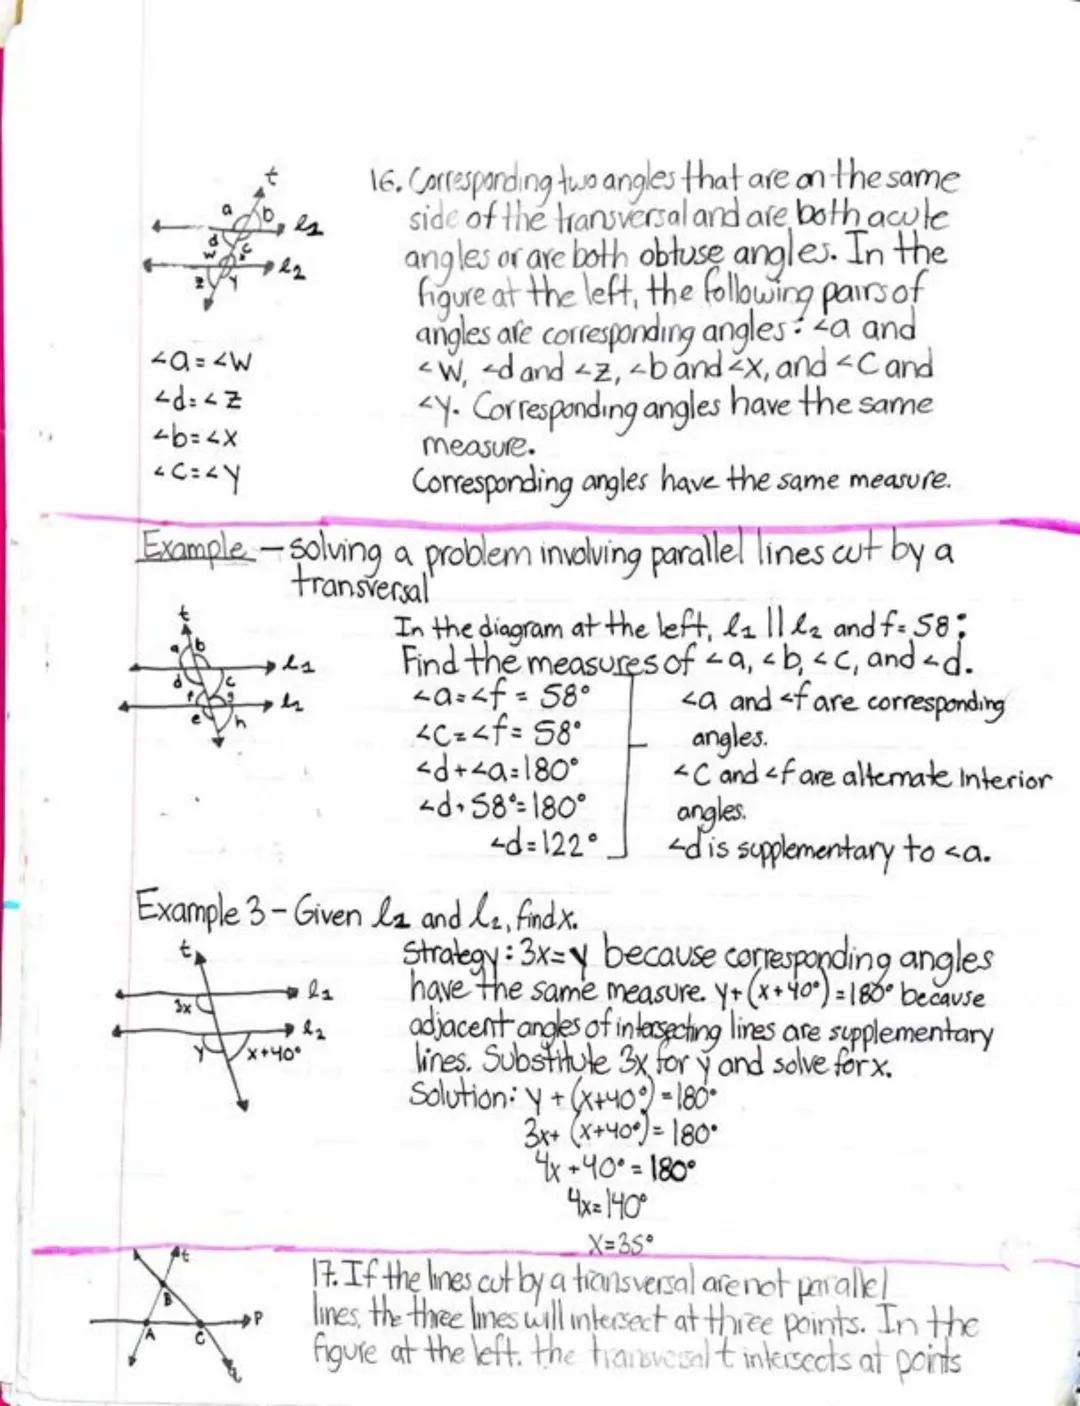 t
a b l1
d c
w x l2
z y
16. Corresponding two angles that are on the same
side of the transversal and are both acute
angles or are both obtuse angles. In the
figure at the left, the following pairs of
angles are corresponding angles: ∠a and
∠W, ∠d and ∠z, ∠b and ∠x, and ∠C and
∠y. Corresponding angles have the same
measure.
Corresponding angles have the same measure.
∠a = ∠W
∠d = ∠Z
∠b = ∠X
∠C = ∠Y
Example - solving a problem involving parallel lines cut by a
transversal
t
a b l1
d c
f g l2
e h
In the diagram at the left, l1 || l2 and f = 58°.
Find the measures of ∠a, ∠b, ∠c, and ∠d.
∠a = ∠f = 58°
∠C = ∠f = 58°
∠d + ∠a = 180°
∠d + 58° = 180°
∠d = 122°
∠a and ∠f are corresponding
angles.
∠C and ∠f are alternate Interior
angles.
∠d is supplementary to ∠a.
Example 3 - Given l1 and l2, find x.
t
l1
3x
l2
y x+40°
Strategy: 3x = y because corresponding angles
have the same measure. y + (x+40°) = 180° because
adjacent angles of intersecting lines are supplementary
lines. Substitute 3x for y and solve for x.
Solution: y + (x+40°) = 180°
3x + (x+40°) = 180°
4x + 40° = 180°
4x = 140°
X = 35°
t
B
A C P
17. If the lines cut by a transversal are not parallel
lines, the three lines will intersect at three points. In the
figure at the left. the transversal t intersects at points